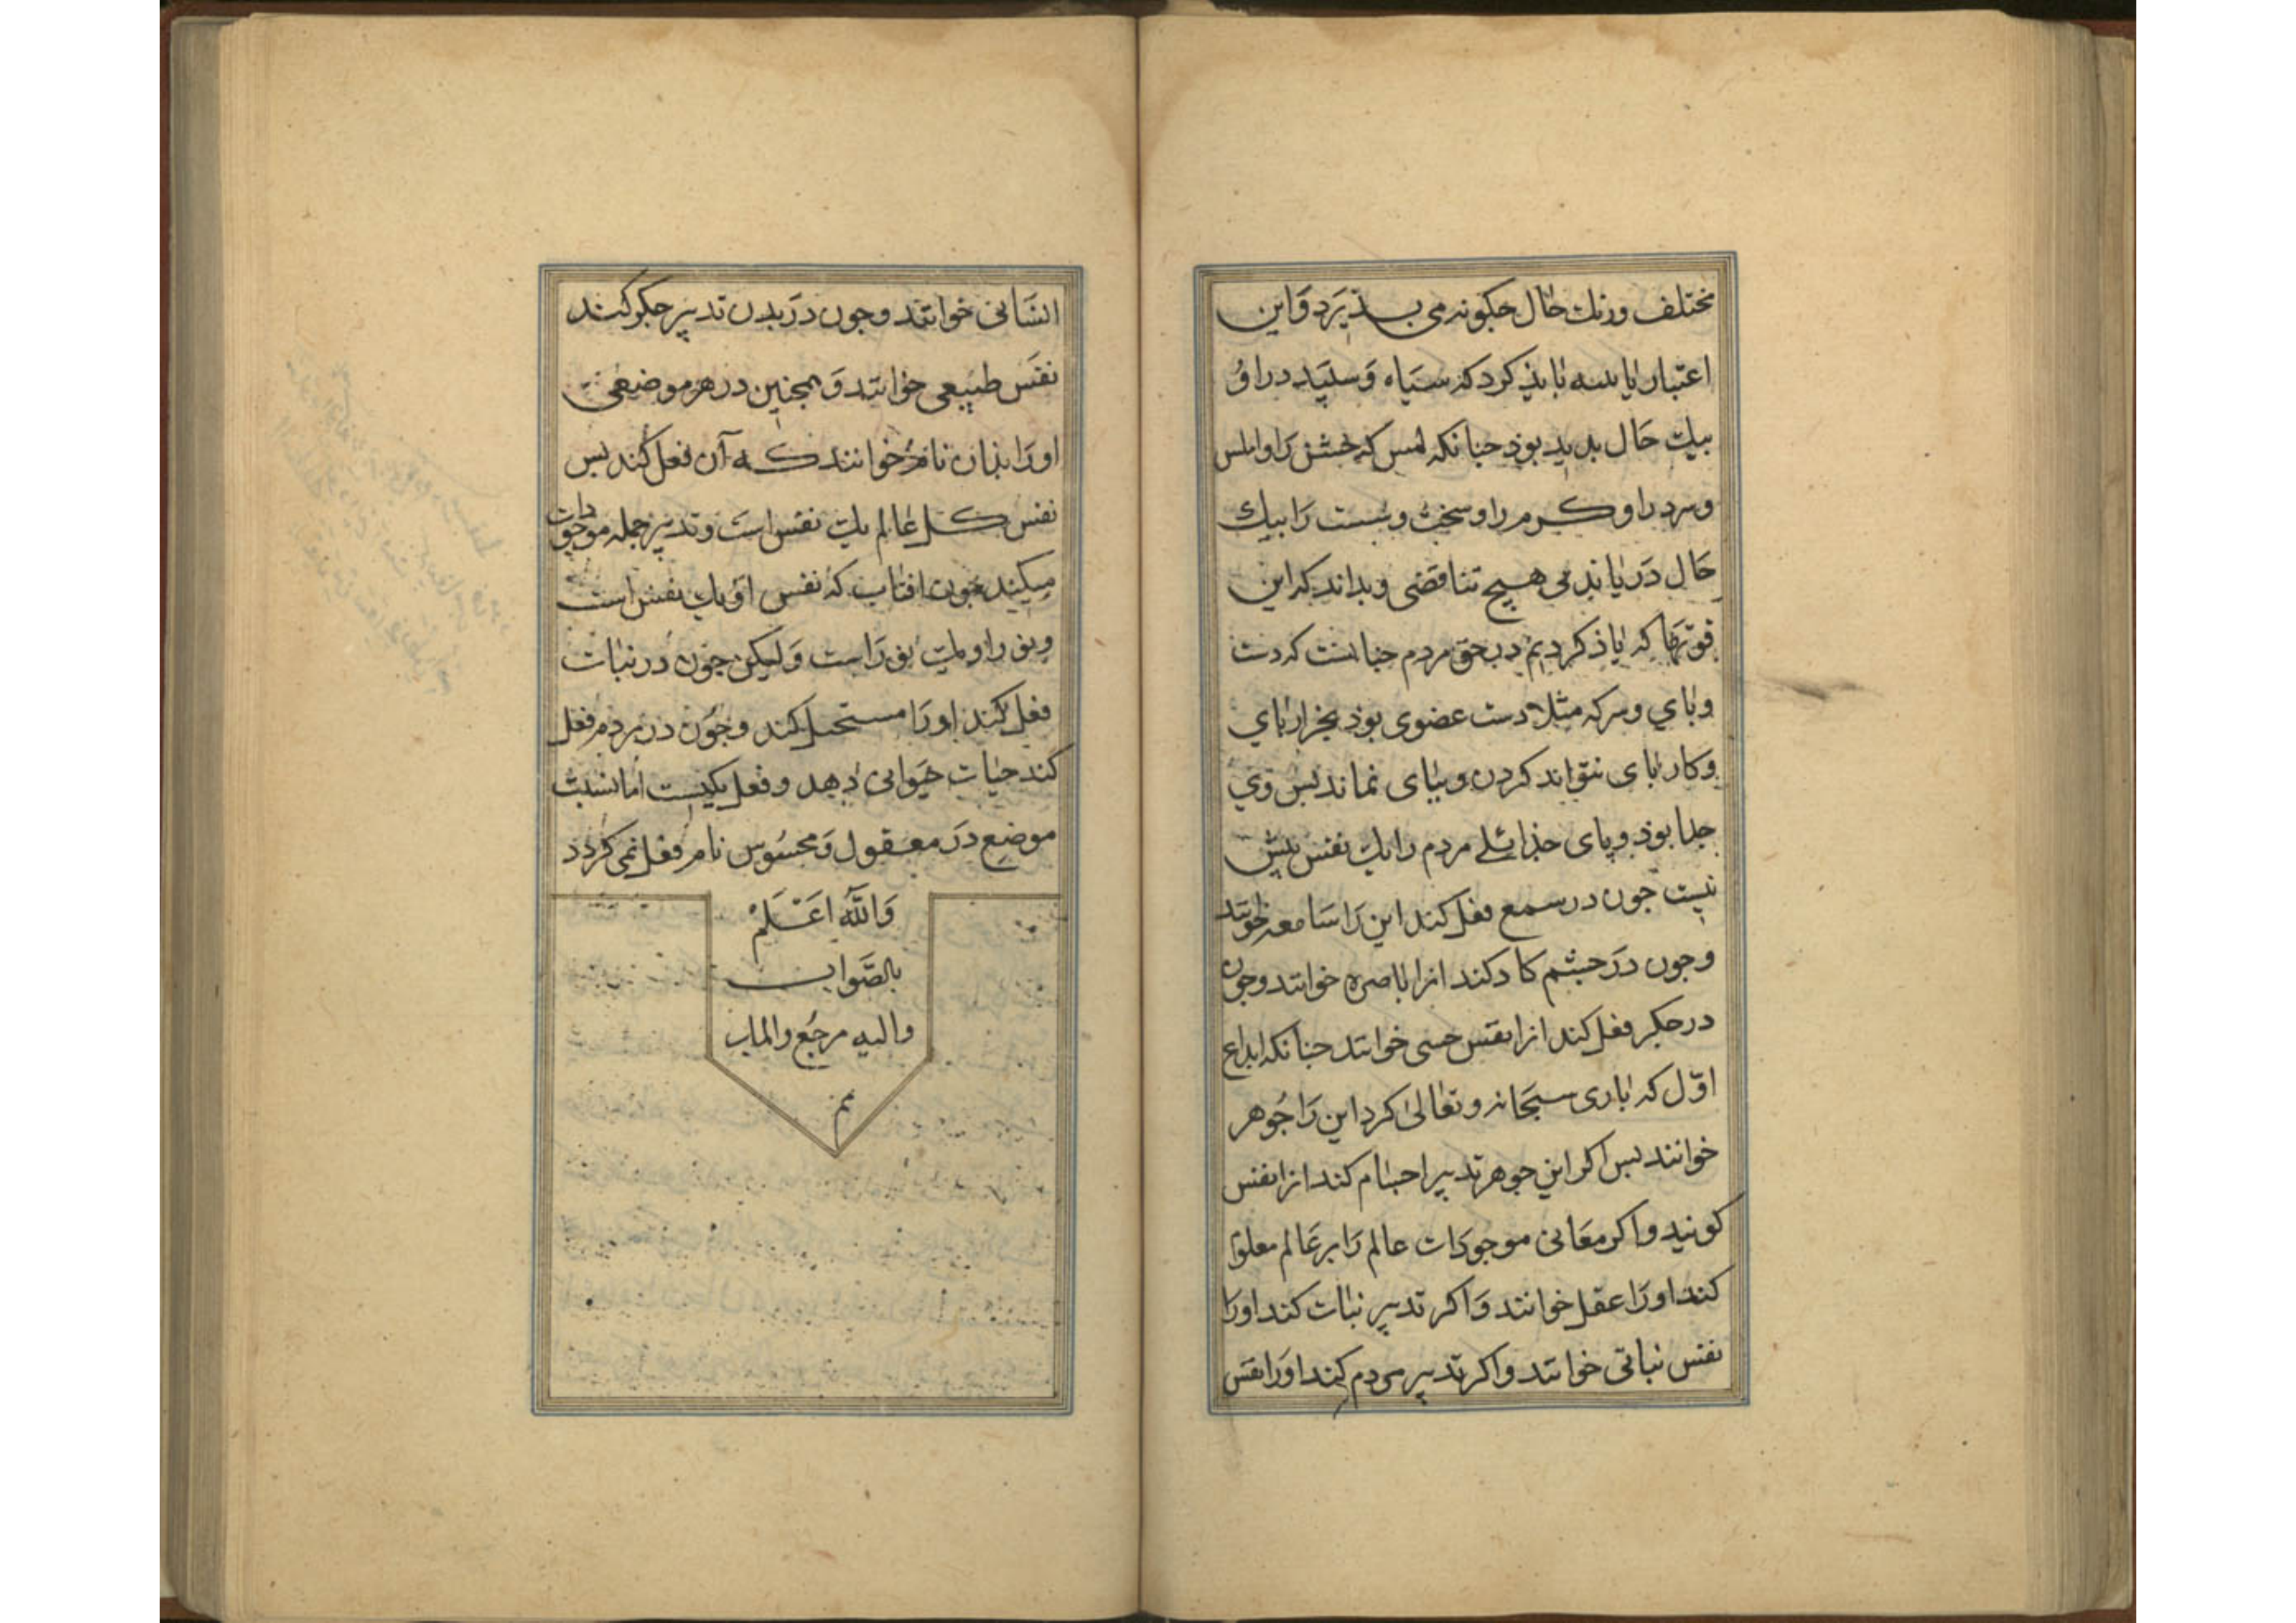 مختلف و زنك حال جكونه می بـذیرد و این
اعتبار یا بسه بایذ کرد که سیاه و سپید در او
بیك حال بدید بوذ جنانکه لمس که خشن را و املس
و سرد را و کـرم را و سخت و سست را بیك
حال در یابد می هیج تناقضی و بداند که این
قوتها که یاذ کردیم در حق مردم جنانست که دست
و بای و سر که مثلا دست عضوی بوذ بجز از بای
و کار بای نتواند کردن و ببای نماند بس وی
جدا بوذ و پای جذا بلی مردم را یك نفس بیش
نیست جون در سمع فعل کند این را سامعه خوانند
و جون در جشم کار کند انرا باصره خوانند و جون
در جکر فعل کند انرا نفس حسی خوانند جنانکه ابداع
اول که باری سبحانه و تعالی کرد این را جوهر
خوانند بس اکر این جوهر تدبیر اجسام کند انرا نفس
کویند و اکر معانی موجودات عالم را بر عالم معلوم
کند او را عقل خوانند و اکر تدبیر نبات کند او را
نفس نباتی خوانند و اکر تدبیر مردم کند او را نفس
انسانی خوانند و جون در بدن تدبیر جکر کند
نفس طبیعی خوانند و همجنین در هر موضعی
او را بذان نام خوانند کـه آن فعل کند بس
نفس کـل عالم یك نفس است و تدبیر جمله موجودات
میکند جون افتاب که نفس او یك نفس است
و نور او یك نور است و لیکن جون در نبات
فعل کند او را مستحیل کند و جون در مردم فعل
کند حیات حیوانی دهد و فعل یکیست اما نسبت
موضع در معقول و محسوس نام فعل نمی کردد
والله اعلم
بالصواب
والیه مرجع والماب
تم